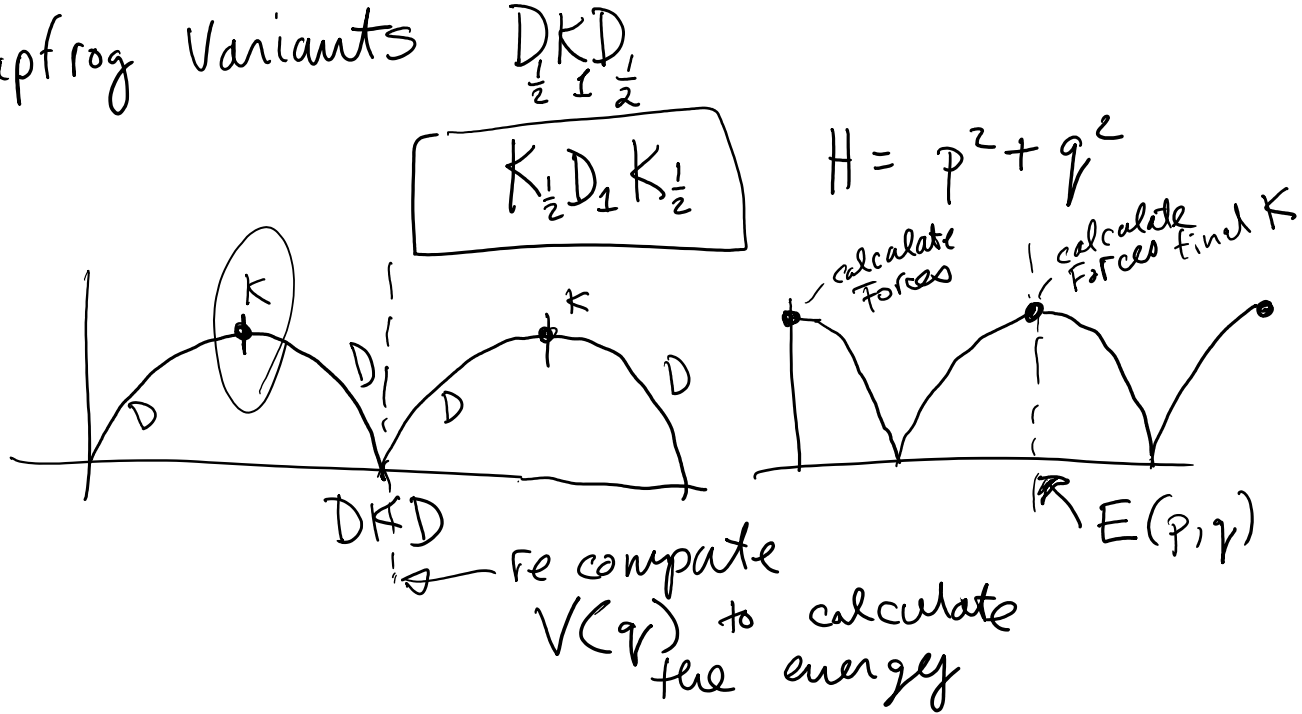 apfrog Variants D½KD½
1
K½D₁K½
H = p² + q²
calculate
Forces
calculate
Forces final K
K
K
D
D
D
D
DKD
E(p,q)
re compute
V(q) to calculate
the energy